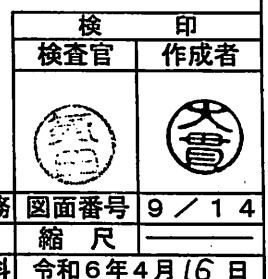 検 印
検査官 作成者
大貫
務 図面番号 9／14
縮 尺
料 令和6年4月16日